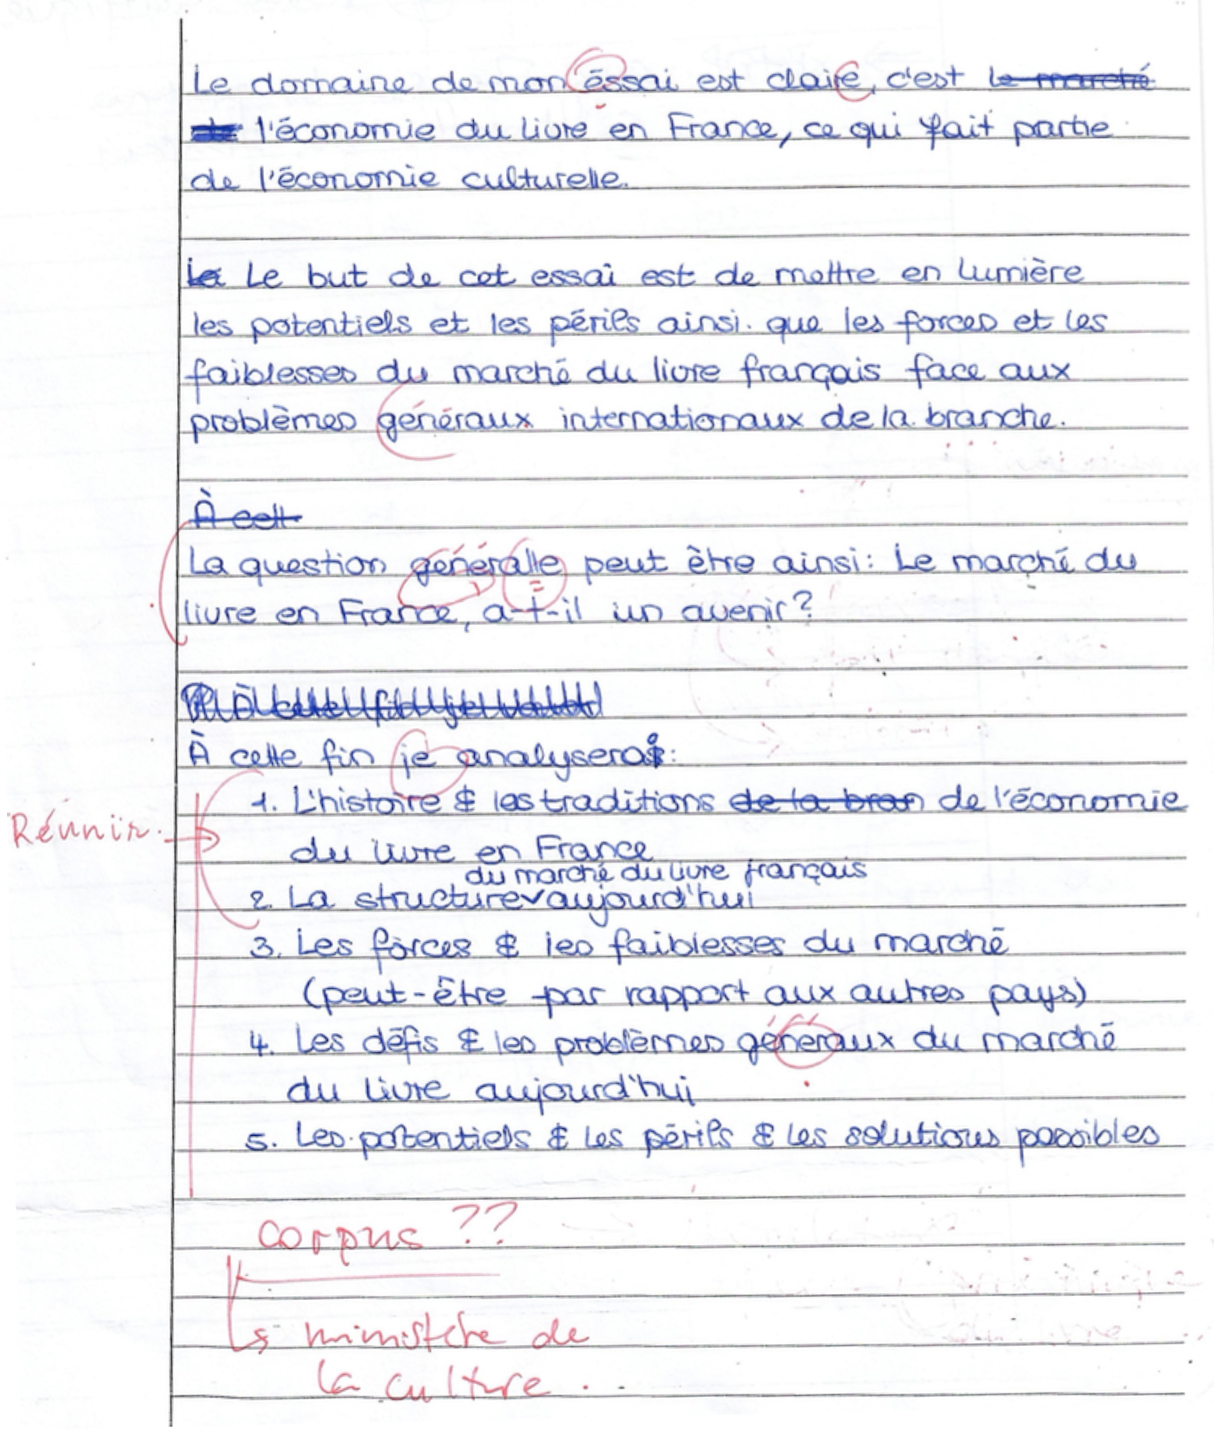 Le domaine de mon éssai est claire, c'est le marché
de l'économie du livre en France, ce qui fait partie
de l'économie culturelle.
Le Le but de cet essai est de mettre en lumière
les potentiels et les périls ainsi que les forces et les
faiblesses du marché du livre français face aux
problèmes généraux internationaux de la branche.
À cett
La question généralle peut être ainsi: Le marché du
livre en France, a-t-il un avenir?
À cette fin je analyserai:
1. L'histoire & les traditions de la bran de l'économie
Réunir.
du livre en France
du marché du livre français
2. La structure aujourd'hui
3. Les forces & les faiblesses du marché
(peut-être par rapport aux autres pays)
4. Les défis & les problèmes généraux du marché
du livre aujourd'hui
5. Les potentiels & les périls & les solutions possibles
corpus ??
ministère de
la culture.